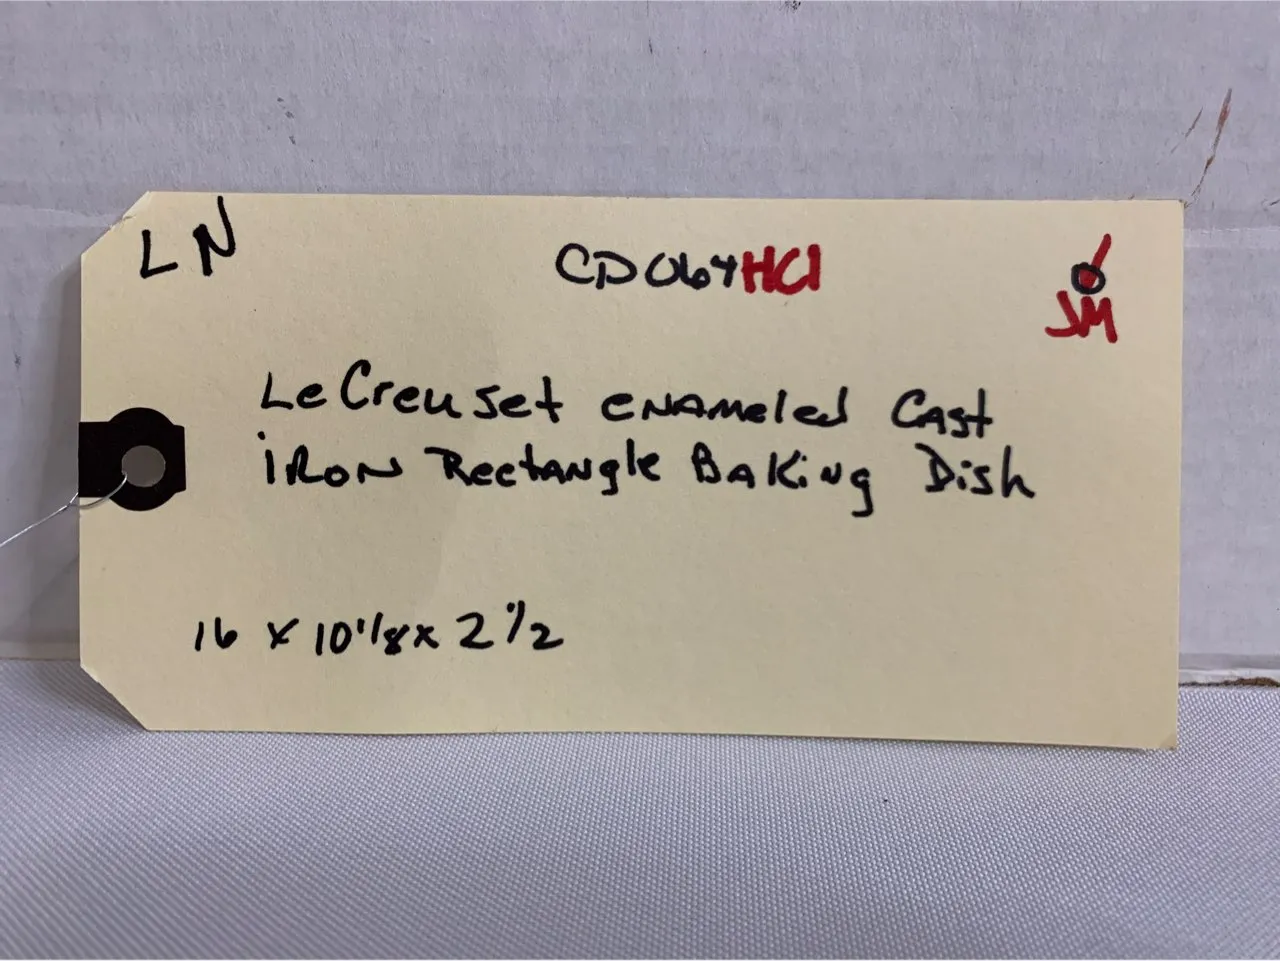 LN
CD064HCI
JM
Le Creuset enameled Cast
iRon Rectangle Baking Dish
16 x 10 1/8 x 2 1/2